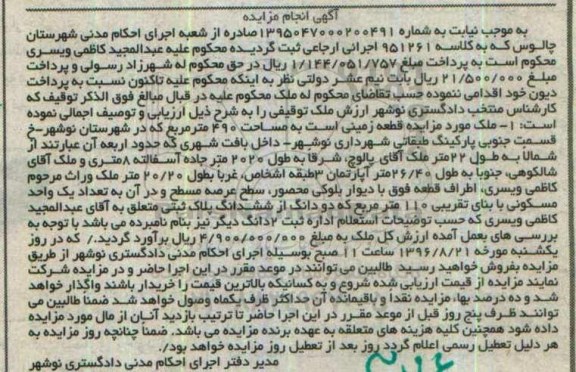 آگهی انجام مزایده
به موجب نیابت به شماره ۱۳۹۵۰۴۷۰۰۰۲۰۰۴۹۱صادره از شعبه اجرای احکام مدنی شهرستان
چالوس که به کلاسه ۹۵۱۲۶۱ اجرائی ارجاعی ثبت گردیده محکوم علیه عبدالمجید کاظمی ویسری
محکوم است به پرداخت مبلغ ۱/۱۴۴/۰۵۱/۷۵۷ ریال در حق محکوم له شهرزاد رسولی و پرداخت
مبلغ ۲۱/۵۰۰/۰۰۰ ریال بابت نیم عشر دولتی نظر به اینکه محکوم علیه تاکنون نسبت به پرداخت
دیون خود اقدامی ننموده حسب تقاضای محکوم له ملک محکوم علیه در قبال مبالغ فوق الذکر توقیف که
کارشناس منتخب دادگستری نوشهر ارزش ملک توقیفی را به شرح ذیل ارزیابی و توصیف اجمالی نموده
است: ۱- ملک مورد مزایده قطعه زمینی است به مساحت ۴۹۰ مترمربع که در شهرستان نوشهر-خ
قسمت جنوبی پارکینگ طبقاتی شهرداری نوشهر- داخل بافت شهری که حدود اربعه آن عبارتند از
شمالاً به طول ۲۲متر ملک آقای پالوج، شرقاً به طول ۲۰۲۰ متر جاده آسفالته ۸متری و ملک آقای
شالکوهی، جنوبا به طول ۲۶/۴۰متر آپارتمان ۳طبقه اشخاص، غربا بطول ۲۰/۲۰ متر ملک وراث مرحوم
کاظمی ویسری اطراف قطعه فوق با دیوار بلوکی محصور، سطح عرصه مسطح و در آن به تعداد یک واحد
مسکونی با بنای تقریبی ۱۱۰ متر مربع که دو دانگ از ششدانگ پلاک ثبتی متعلق به آقای عبدالمجید
کاظمی ویسری که حسب توضیحات استعلام اداره ثبت ۲دانگ دیگر نیز بنام نامبرده می باشد با توجه به
بررسی های بعمل آمده ارزش کل ملک به مبلغ ۴/۹۰۰/۰۰۰/۰۰۰ ریال برآورد گردید./ که در روز
یکشنبه مورخه ۱۳۹۶/۸/۲۱ ساعت ۱۱ صبح بوسیله اجرای احکام مدنی دادگستری نوشهر از طریق
مزایده بفروش خواهید رسید طالبین می توانند در موعد مقرر در این اجرا حاضر و در مزایده شرکت
نمایند مزایده از قیمت ارزیابی شده شروع و به کسانیکه بالاترین قیمت را خریدار باشند واگذار خواهد
شد و ده درصد بها، مزایده نقدا و باقیمانده آن حداکثر ظرف یکماه وصول خواهد شد ضمنا طالبین می
توانند ظرف پنج روز قبل از موعد مقرر در این اجرا حاضر تا ترتیب بازدید آنان از مال مورد مزایده
داده شود همچنین کلیه هزینه های متعلقه به عهده برنده مزایده می باشد. ضمناً چنانچه روز مزایده به
هر دلیل تعطیل رسمی اعلام گردد روز بعد از تعطیل روز مزایده خواهد بود./
مدیر دفتر اجرای احکام مدنی دادگستری نوشهر